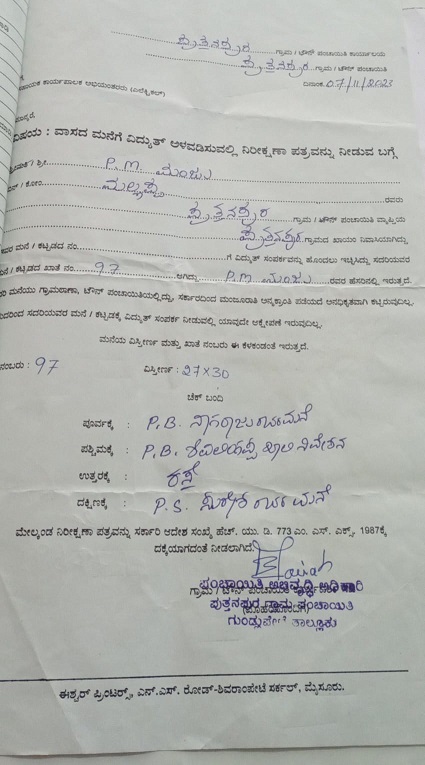 ಪುತ್ತನಪುರ ಗ್ರಾಮ / ಟೌನ್ ಪಂಚಾಯಿತಿ ಕಾರ್ಯಾಲಯ
ಪುತ್ತನಪುರ ಗ್ರಾಮ / ಟೌನ್ ಪಂಚಾಯಿತಿ
ದಿನಾಂಕ 07/11/2023
ಸಹಾಯಕ ಕಾರ್ಯಪಾಲಕ ಅಭಿಯಂತರರು (ಎಲೆಕ್ಟ್ರಿಕಲ್)
ಮಾನ್ಯರೆ,
ವಿಷಯ : ವಾಸದ ಮನೆಗೆ ವಿದ್ಯುತ್ ಅಳವಡಿಸುವಲ್ಲಿ ನಿರೀಕ್ಷಣಾ ಪತ್ರವನ್ನು ನೀಡುವ ಬಗ್ಗೆ
ಶ್ರೀಮತಿ / ಶ್ರೀ P.M. ಮಂಜು
ಬಿನ್ / ಕೋಂ ಮಲ್ಲಪ್ಪ ರವರು
ಪುತ್ತನಪುರ ಗ್ರಾಮ / ಟೌನ್ ಪಂಚಾಯಿತಿ ವ್ಯಾಪ್ತಿಯ
ಪುತ್ತನಪುರ ಗ್ರಾಮದ ಖಾಯಂ ನಿವಾಸಿಯಾಗಿದ್ದು
ಮನೆ / ಕಟ್ಟಡದ ನಂ. ಗೆ ವಿದ್ಯುತ್ ಸಂಪರ್ಕವನ್ನು ಹೊಂದಲು ಇಚ್ಛಿಸಿದ್ದು ಸದರಿಯವರ
ಮನೆ / ಕಟ್ಟಡದ ಖಾತೆ ನಂ. 97 ಆಗಿದ್ದು P.M ಮಂಜು ರವರ ಹೆಸರಿನಲ್ಲಿ ಇರುತ್ತದೆ.
ಮನೆಯು ಗ್ರಾಮಠಾಣಾ, ಟೌನ್ ಪಂಚಾಯಿತಿಯಲ್ಲಿದ್ದು, ಸರ್ಕಾರದಿಂದ ಮಂಜೂರಾತಿ ಪಡೆಯದೆ ಅನಧಿಕೃತವಾಗಿ ಕಟ್ಟಿರುವುದಿಲ್ಲ.
ಸದರಿಯವರ ಮನೆ / ಕಟ್ಟಡಕ್ಕೆ ವಿದ್ಯುತ್ ಸಂಪರ್ಕ ನೀಡುವಲ್ಲಿ ಯಾವುದೇ ಆಕ್ಷೇಪಣೆ ಇರುವುದಿಲ್ಲ.
ಮನೆಯ ವಿಸ್ತೀರ್ಣ ಮತ್ತು ಖಾತೆ ನಂಬರು ಈ ಕೆಳಕಂಡಂತೆ ಇರುತ್ತದೆ.
ನಂಬರು : 97 ವಿಸ್ತೀರ್ಣ : 27X30
ಚೆಕ್ ಬಂದಿ
ಪೂರ್ವಕ್ಕೆ : P.B. ನಾಗರಾಜು ರವರ ಮನೆ
ಪಶ್ಚಿಮಕ್ಕೆ : P.B. ಖಾಲಿ ನಿವೇಶನ
ಉತ್ತರಕ್ಕೆ : ರಸ್ತೆ
ದಕ್ಷಿಣಕ್ಕೆ : P.S. ರವರ ಮನೆ
ಮೇಲ್ಕಂಡ ನಿರೀಕ್ಷಣಾ ಪತ್ರವನ್ನು ಸರ್ಕಾರಿ ಆದೇಶ ಸಂಖ್ಯೆ ಹೆಚ್. ಯು. ಡಿ. 773 ಎಂ. ಎನ್. ಎಕ್ಸ್, 1987ಕ್ಕೆ
ದಕ್ಕೆಯಾಗದಂತೆ ನೀಡಲಾಗಿದೆ.
ಪಂಚಾಯಿತಿ ಅಭಿವೃದ್ಧಿ ಅಧಿಕಾರಿ
ಪುತ್ತನಪುರ ಗ್ರಾಮ ಪಂಚಾಯಿತಿ
ಗುಂಡ್ಲುಪೇಟೆ ತಾಲ್ಲೂಕು
ಈಶ್ವರ್ ಪ್ರಿಂಟರ್ಸ್, ಎನ್.ಎಸ್. ರೋಡ್-ಶಿವರಾಂಪೇಟೆ ಸರ್ಕಲ್, ಮೈಸೂರು.